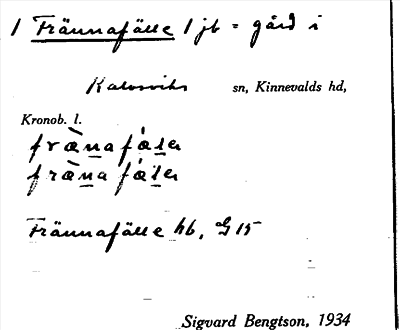 1 Frännafälle 1 jb = gård i
Kalvsviks sn, Kinnevalds hd,
Kronob. l.
fræ̀nafǽlɐ
fræ̀na fǽlɐ
Frännafälle hb, G 15
Sigvard Bengtson, 1934